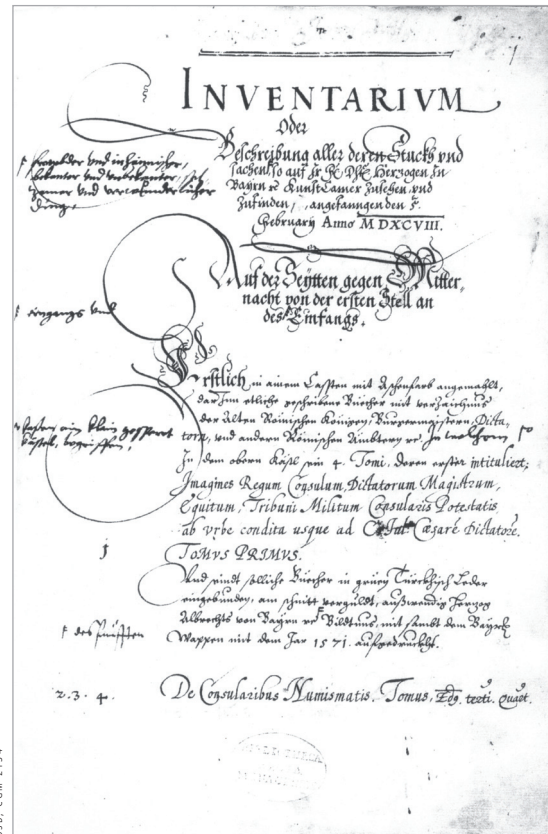 INVENTARIVM
Oder
Beschreibung aller deren Stuckh vnd
sachen, so auf Ir F. Dht. Herzogen in
Bayrn etc. Kunstcamer zusehen, vnd
zufinden, angefanngen den 5.
February Anno MDXCVIII.
frembder vnd inhaimischer,
bekanter vnd vnbekanter,
vnd verwunderlicher
ding.
Auf der Seytten gegen Mitter,
nacht von der ersten Stell an
des Einfangs.
Eingangs vnd
Erstlich in ainem Casten mit Aschenfarb angemahlt,
darInn etliche geschribne Büecher mit verzaichnus
der Alten Römischen Künigen, Burgermeistern, Dicta-
torn, vnd andern Römischen Ambtern etc. In welchem
In dem obern Kästl sein 4. Tomi, deren erster intituliert;
Imagines Regum Consulum, Dictatorum Magistrum,
Equitum, Tribuni Militum Consularis Potestatis
ab vrbe condita usque ad C. Jul. Cæsarē Dictatorē.
1
TOMVS PRIMVS.
Vnd sindt solliche Büecher in grüen Türckhisch Leder
eingebunden, am schnitt vergüldt, außwendig Herzog
Albrechts von Bayrn etc. Bildtnus, mit sambt dem Bayrischen
des fünfften
Wappen mit dem Jar 1571. aufgedruckht.
2. 3. 4.
De Consularibus Numismatis. Tomus, 2dg. terti. Quart.